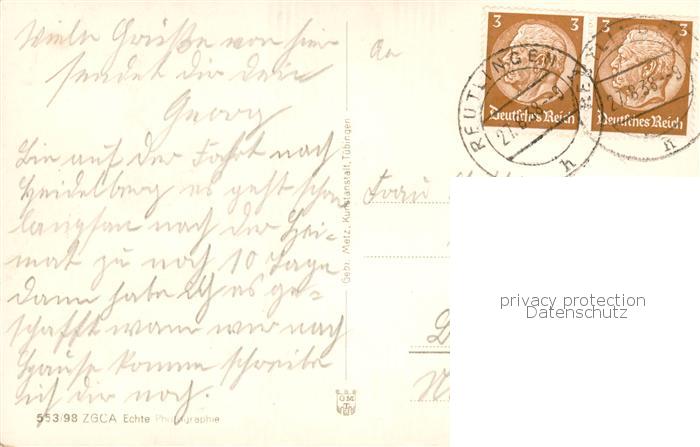 Viele Grüße von hier
sendet dir dein
Georg
Bin auf der Fahrt nach
Heidelberg es geht schon
langsam nach der Hei-
mat zu noch 10 Tage
dann habe ich es ge-
schafft wann wir nach
Hause komme schreibe
ich dir noch.
553/98 ZGCA Echte Photographie
Gebr. Metz, Kunstanstalt, Tübingen
An
Frau
3 3
Deutsches Reich
3 3
Deutsches Reich
REUTLINGEN
27.8.38.-9
h
27.8.38.-9
h
privacy protection
Datenschutz